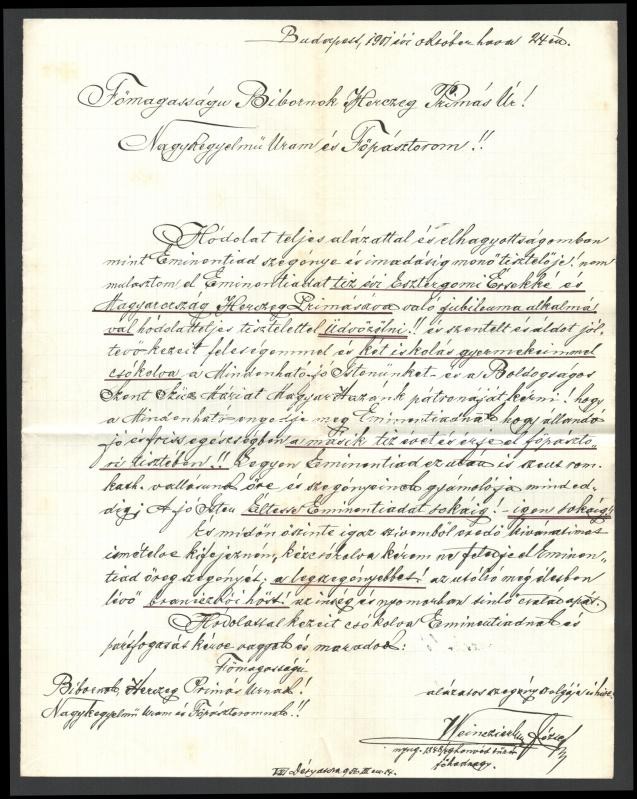 Budapest, 1901 évi október hava 24 én.
Főmagasságu Bibornok Herczeg Primás Úr!
Nagykegyelmű Uram és Főpásztorom!!
Hódolat teljes alázattal és elhagyottságomban
mint Eminentiád szegénye és imádásig menő tisztelője! nem
mulasztom el Eminentiádat tiz évi Esztergomi Érsekké és
Magyarország Herczeg Primásává való jubileuma alkalmá
val hódolatteljes tisztelettel üdvözölni!! és szentelt és áldot jól-
tevő kezeit feleségemmel és két iskolás gyermekeimmel
csókolva a Mindenható jó Istenünket és a Boldogságos
Szent Szűz Máriát Magyar Hazánk pátronáját kérni! hogy
a Mindenható engedje meg Eminentiádnak hogy állandó
jó és friss egészségben a másik tiz évet és érje el főpászto
ri tisztében!! Legyen Eminentiád ez után is szent rom.
kath. vallásunk őre és szegényeinek gyámolója minded-
dig; A jó Isten Éltesse Eminentiádat sokáig! - igen sokáig!!
És midőn őszinte igaz szivemből eredő kivánatimat
ismételve kifejezném, kézcsókolva kérem ne feledje el Eminen-
tiád öreg szegényét, a legszegényebbet! az utolsó még életben
lévő braniczkói hőst! az inség és nyomorban sinlő családapát.
Hódolattal kezeit csókolva Eminentiádnak és
pártfogását kérve vagyok és maradok:
Főmagasságú
Bibornok, Herczeg Primás Urnak!
Nagykegyelmű Uram és Főpásztoromnak!!
alázatos szegény szolgája és hive:
Weinzierl József
nyug. 1848/9 honvéd
főhadnagy.
VII